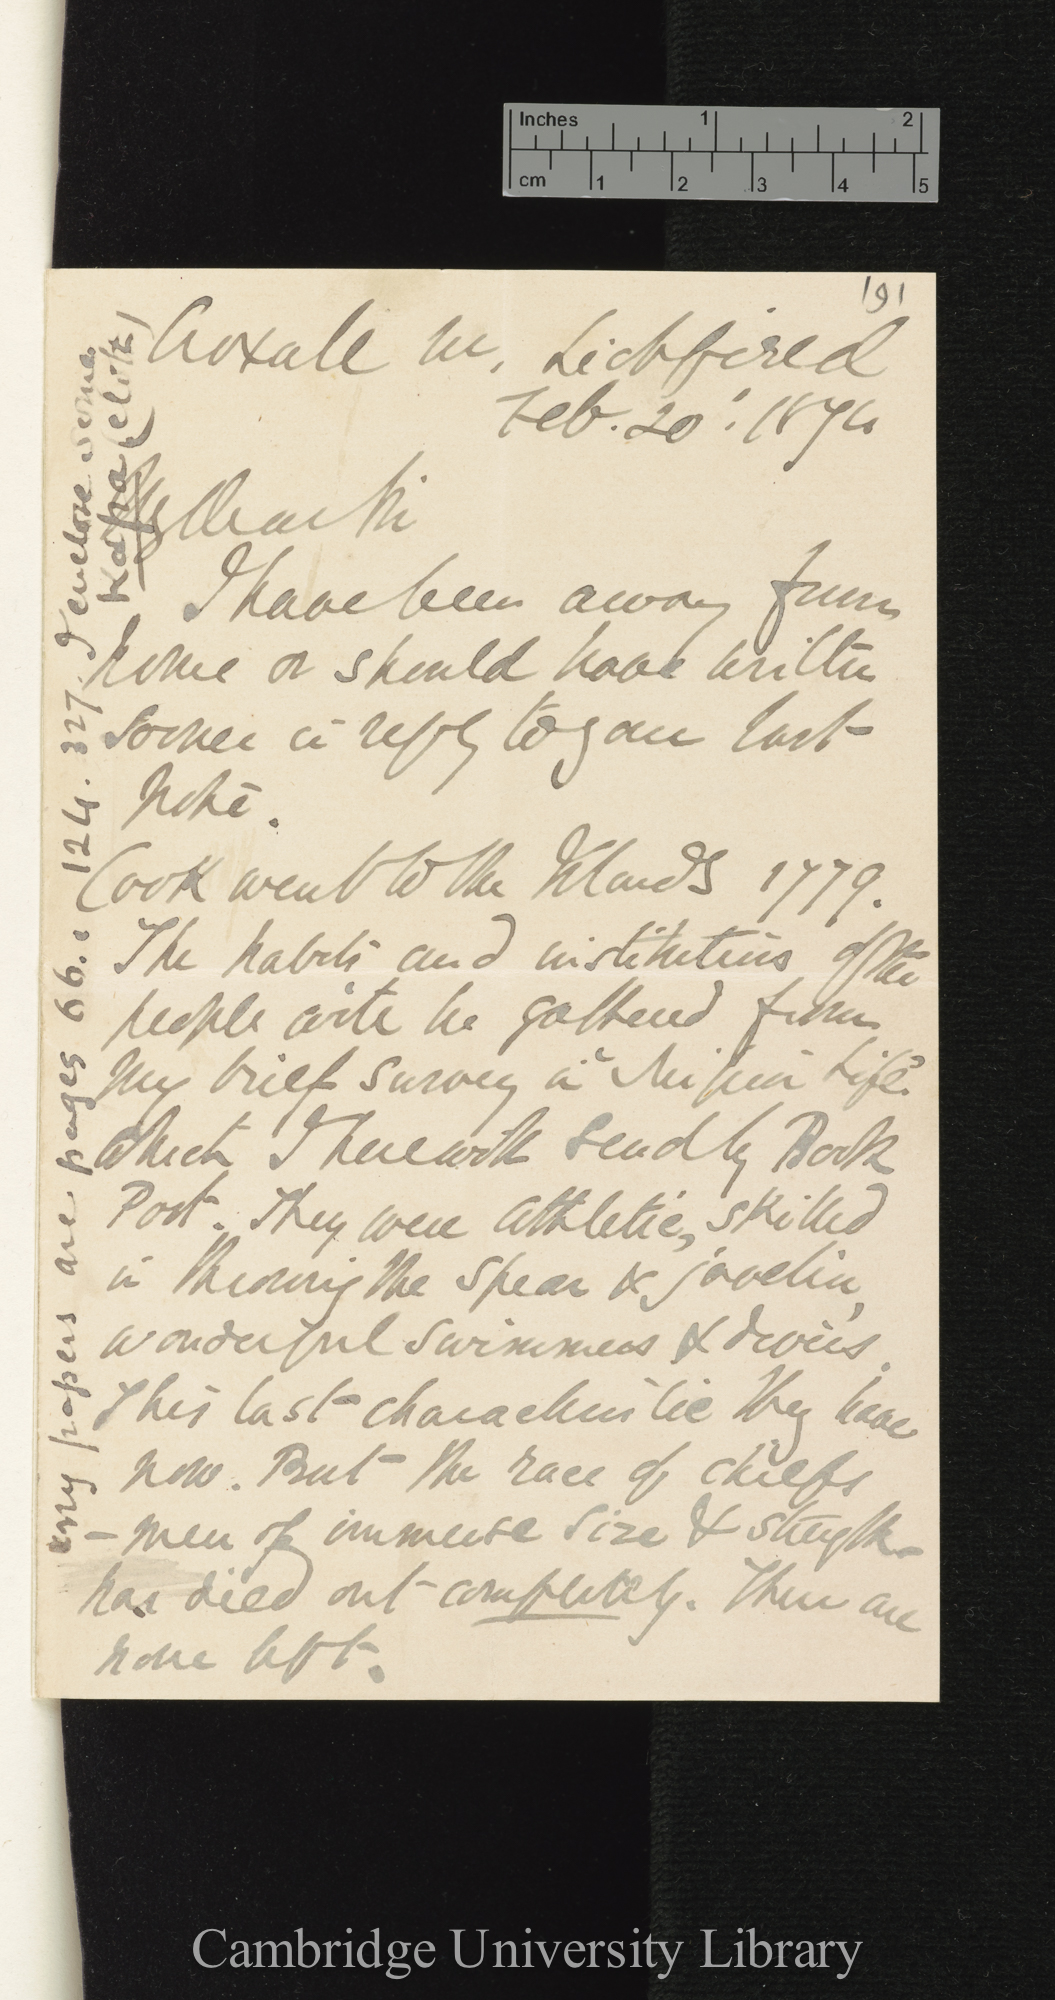 Inches 1 2
cm 1 2 3 4 5
191
Croxall nr. Lichfield
Feb. 20. 1874
My dear Sir
I have been away from
home or should have written
sooner in reply to your last
note.
Cook went to the Islands 1779.
The habits and institutions of the
people will be gathered from
my brief survey in Mission Life
which I herewith send by Book
Post. They were athletic, skilled
in throwing the spear & javelin,
wonderful swimmers & divers.
This last characteristic they have
now. But the race of chiefs
– men of immense size & strength –
has died out completely. There are
none left.
my papers are pages 66. 124. 327. I enclose some
Kapa (cloth)
Cambridge University Library